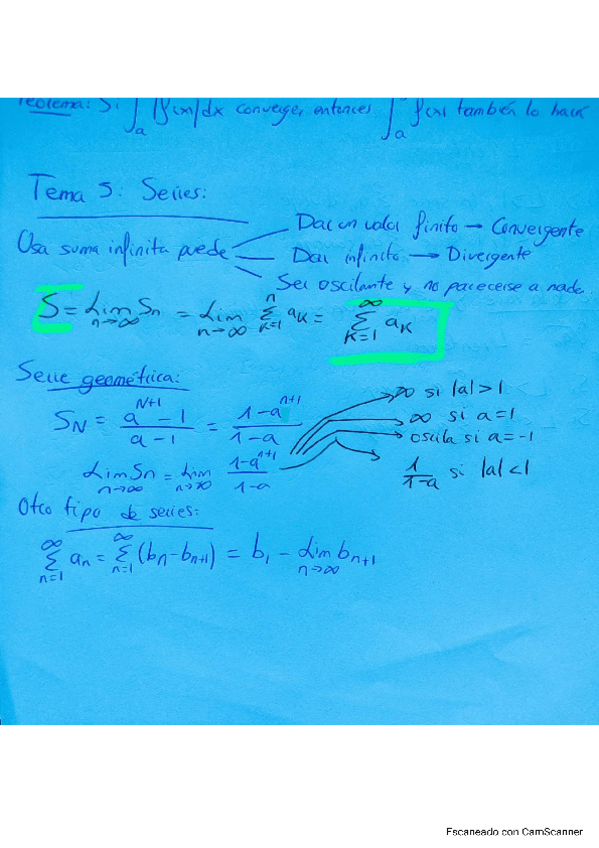 Teorema: Si ∫a |f(x)|dx converge, entonces ∫a f(x) también lo hará
Tema 5: Series:
Usa suma infinita puede
Dar un valor finito → Convergente
Dar infinito → Divergente
Ser oscilante y no parecerse a nada.
S = Lim n→∞ Sn = Lim n→∞ Σ k=1 n ak = Σ k=1 ∞ ak
Serie geométrica:
SN = (a^(N+1) - 1)/(a - 1) = (1 - a^(n+1))/(1 - a)
Lim n→∞ Sn = Lim n→∞ (1 - a^(n+1))/(1 - a)
∞ si |a| > 1
∞ si a = 1
oscila si a = -1
1/(1-a) si |a| < 1
Otro tipo de series:
Σ n=1 ∞ an = Σ n=1 ∞ (bn - bn+1) = b1 - Lim n→∞ bn+1
Escaneado con CamScanner